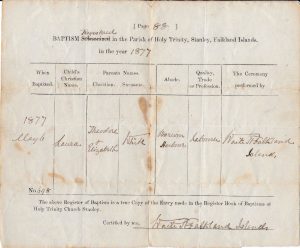 [ Page 88 ]
Registered
BAPTISM Solemnized in the Parish of Holy Trinity, Stanley, Falkland Islands.
in the year 1877
When Baptized.
Child's Christian Name.
Parents Names.
Christian.
Surname.
Abode.
Quality, Trade or Profession.
The Ceremony performed by
1877
May 6
Laura
Theodore
+
Elizabeth
Harbour
Labourer
Waite H Falkland
Islands.
No 398
The above Register of Baptism is a true Copy of the Entry made in the Register Book of Baptisms at
Holy Trinity Church Stanley.
Certified by me,
Waite H Falkland Islands